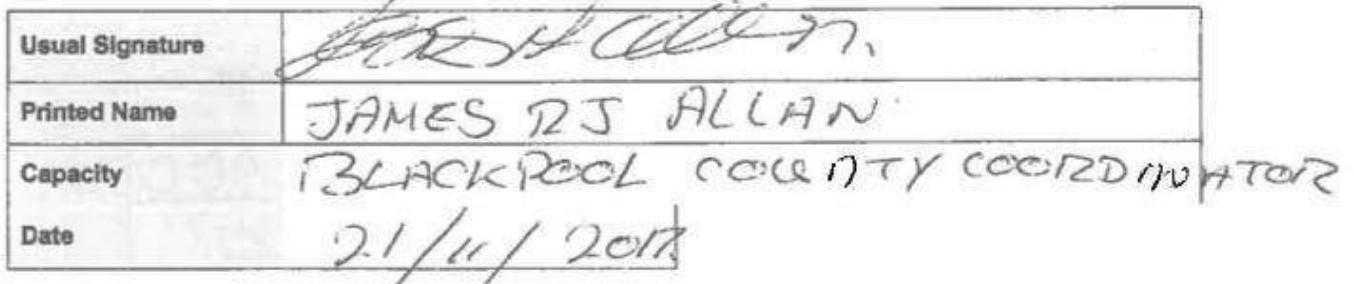 Usual Signature
Printed Name JAMES RJ ALLAN
Capacity BLACKPOOL COUNTY COORDINATOR
Date 21/11/2017